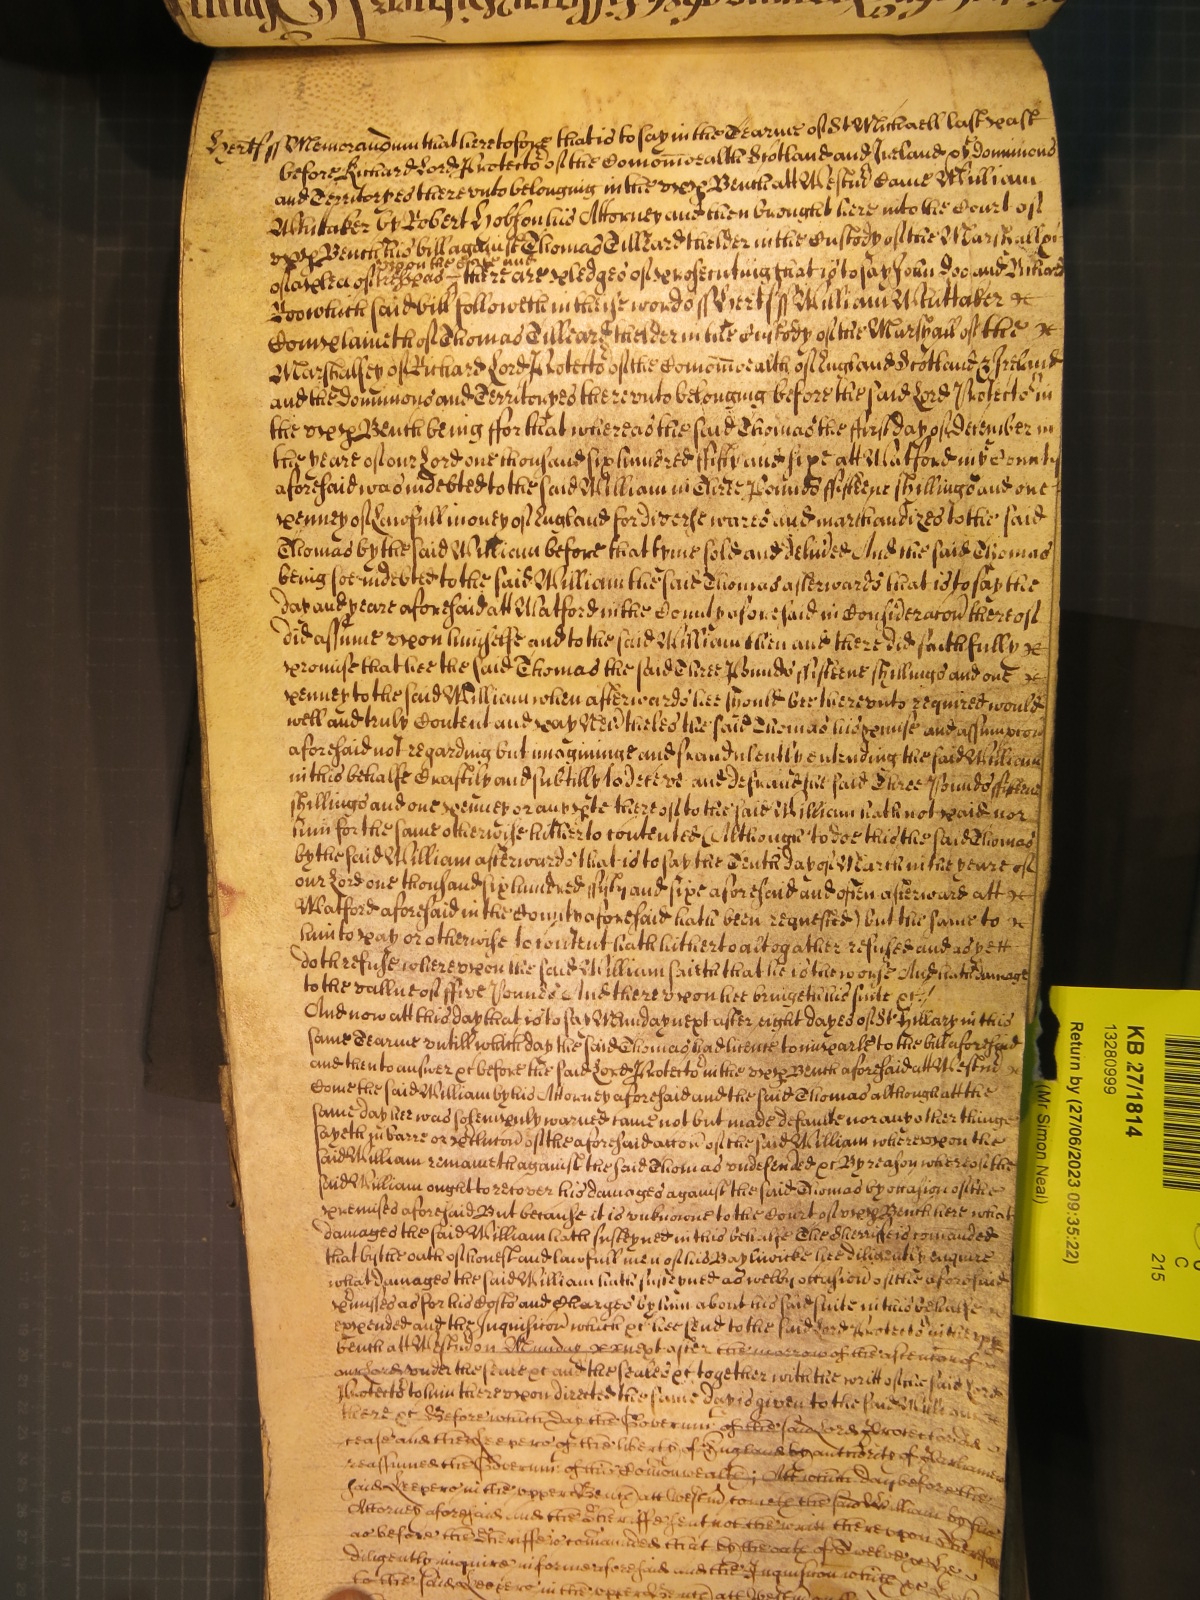 Hertf ss Memorandum that heretofore that is to say in the Tearme of St Michaell last past
before Richard Lord Protector of the Comonwealth Scotland and Ireland ye Dominions
and Territoryes there unto belonging in the upper Bench att Westmr Came William
Whittaker by Robert Hobson his Attorney and then brought here into the Court of
upper Bench his bill against Thomas Tilleard thelder in the Custody of the Marshall &c
upon the case and
of a plea of trespas there are pledges of prosecuting that is to say John Doe and Richard
Roo which said bill followeth in these words ss Hertf ss William Whittaker
Complaineth of Thomas Tilleard thelder in the Custody of the Marshall of the
Marshalsey of Richard Lord Protector of the Comonwealth of England Scotland & Ireland
and the Dominions and Territoryes thereunto belonging before the said Lord Protector in
the upper Bench being ffor that whereas the said Thomas the first day of December in
the yeare of our Lord one thousand six hundred fifty and sixe att Watford in ye County
aforesaid was indebted to the said William in Three Pounds fifteene shillings and one
penney of lawfull money of England for diverse wares and marchandizes to the said
Thomas by the said William before that tyme sold and delivered And the said Thomas
being soe indebted to the said William the said Thomas afterwards that is to say the
day and yeare aforesaid att Watford in the County aforesaid in Consideracon thereof
did assume upon himselfe and to the said William then and there did faithfully
promise that hee the said Thomas the said Three Pounds fifteene shillings and one
penney to the said William when afterwards hee should bee thereunto required would
well and truly Content and pay Nevertheles the said Thomas his promise and assumpcon
aforesaid not regarding but imagininge and fraudulently entending the said William
in this behalfe Craftily and subtilly to deceive and defraud the said Three Pounds fifteene
shillings and one penney or any parte thereof to the said William hath not paid nor
him for the same otherwise hitherto contented (Although to doe this the said Thomas
by the said William afterwards that is to say the Tenth day of March in the yeare of
our Lord one thousand six hundred fifty and sixe aforesaid and often afterward att
Watford aforesaid in the County aforesaid hath been requested) but the same to
him to pay or otherwise to content hath hitherto altogather refused and as yett
doth refuse whereupon the said William saieth that he is the worse And hath damage
to the vallue of ffive Pounds And thereupon hee bringeth his suite &c
And now att this day that is to say Munday next after eight dayes of St Hillary in this
same Tearme untill which day the said Thomas had licence to imparle to the bill aforesaid
and then to answer &c before the said Lord Protector in the upper Bench aforesaid att Westmr
Come the said William by his Attorney aforesaid and the said Thomas although att the
same day hee was solemply warned came not but made default nor any other thinge
sayeth in barre or preclucon of the aforesaid accon of the said William whereupon the
said William remaineth against the said Thomas undefended &c By reason whereof the
said William ought to recover his damages against the said Thomas by occasion of the
premises aforesaid But because it is unknowne to the Court of upper Bench here what
damages the said William hath susteyned in this behalfe The Sherriffe is comanded
that by the oath of honest and lawfull men of his Baylwicke hee diligently enquire
what damages the said William hath susteyned as well by occasion of the aforesaid
premisses as for his Costs and Charges by him about his said suite in this behalfe
expended and the Inquisicon which &c hee send to the said Lord Protector in the upper
bench att Westmr on Munday next after the morrow of the ascencon of
our Lord under the seale &c and the seales &c together with the writt of the said Lord
Protector to him thereupon directed the same day is given to the said William
there &c Before which day the Governmt of the said Lord Protector did
cease and the Keepers of the liberty of England by authority of Parliament
reassumed the Governmt of this Comonwealth; Att which day before the
said Keepers in the upper Bench att Westmr cometh the said William by his
Attorney aforesaid and the Sherriffe sent not the writt thereupon Therefore
as before the Sherriffe is comanded that by the oath of Twelve &c hee
diligently inquire in forme aforesaid and the Inquisicon which &c
to the said Keepers in the upper Bench att Westmr
KB 27/1814
13280999
Return by (27/06/2023 09:35:22)
(Mr Simon Neal)
C
215